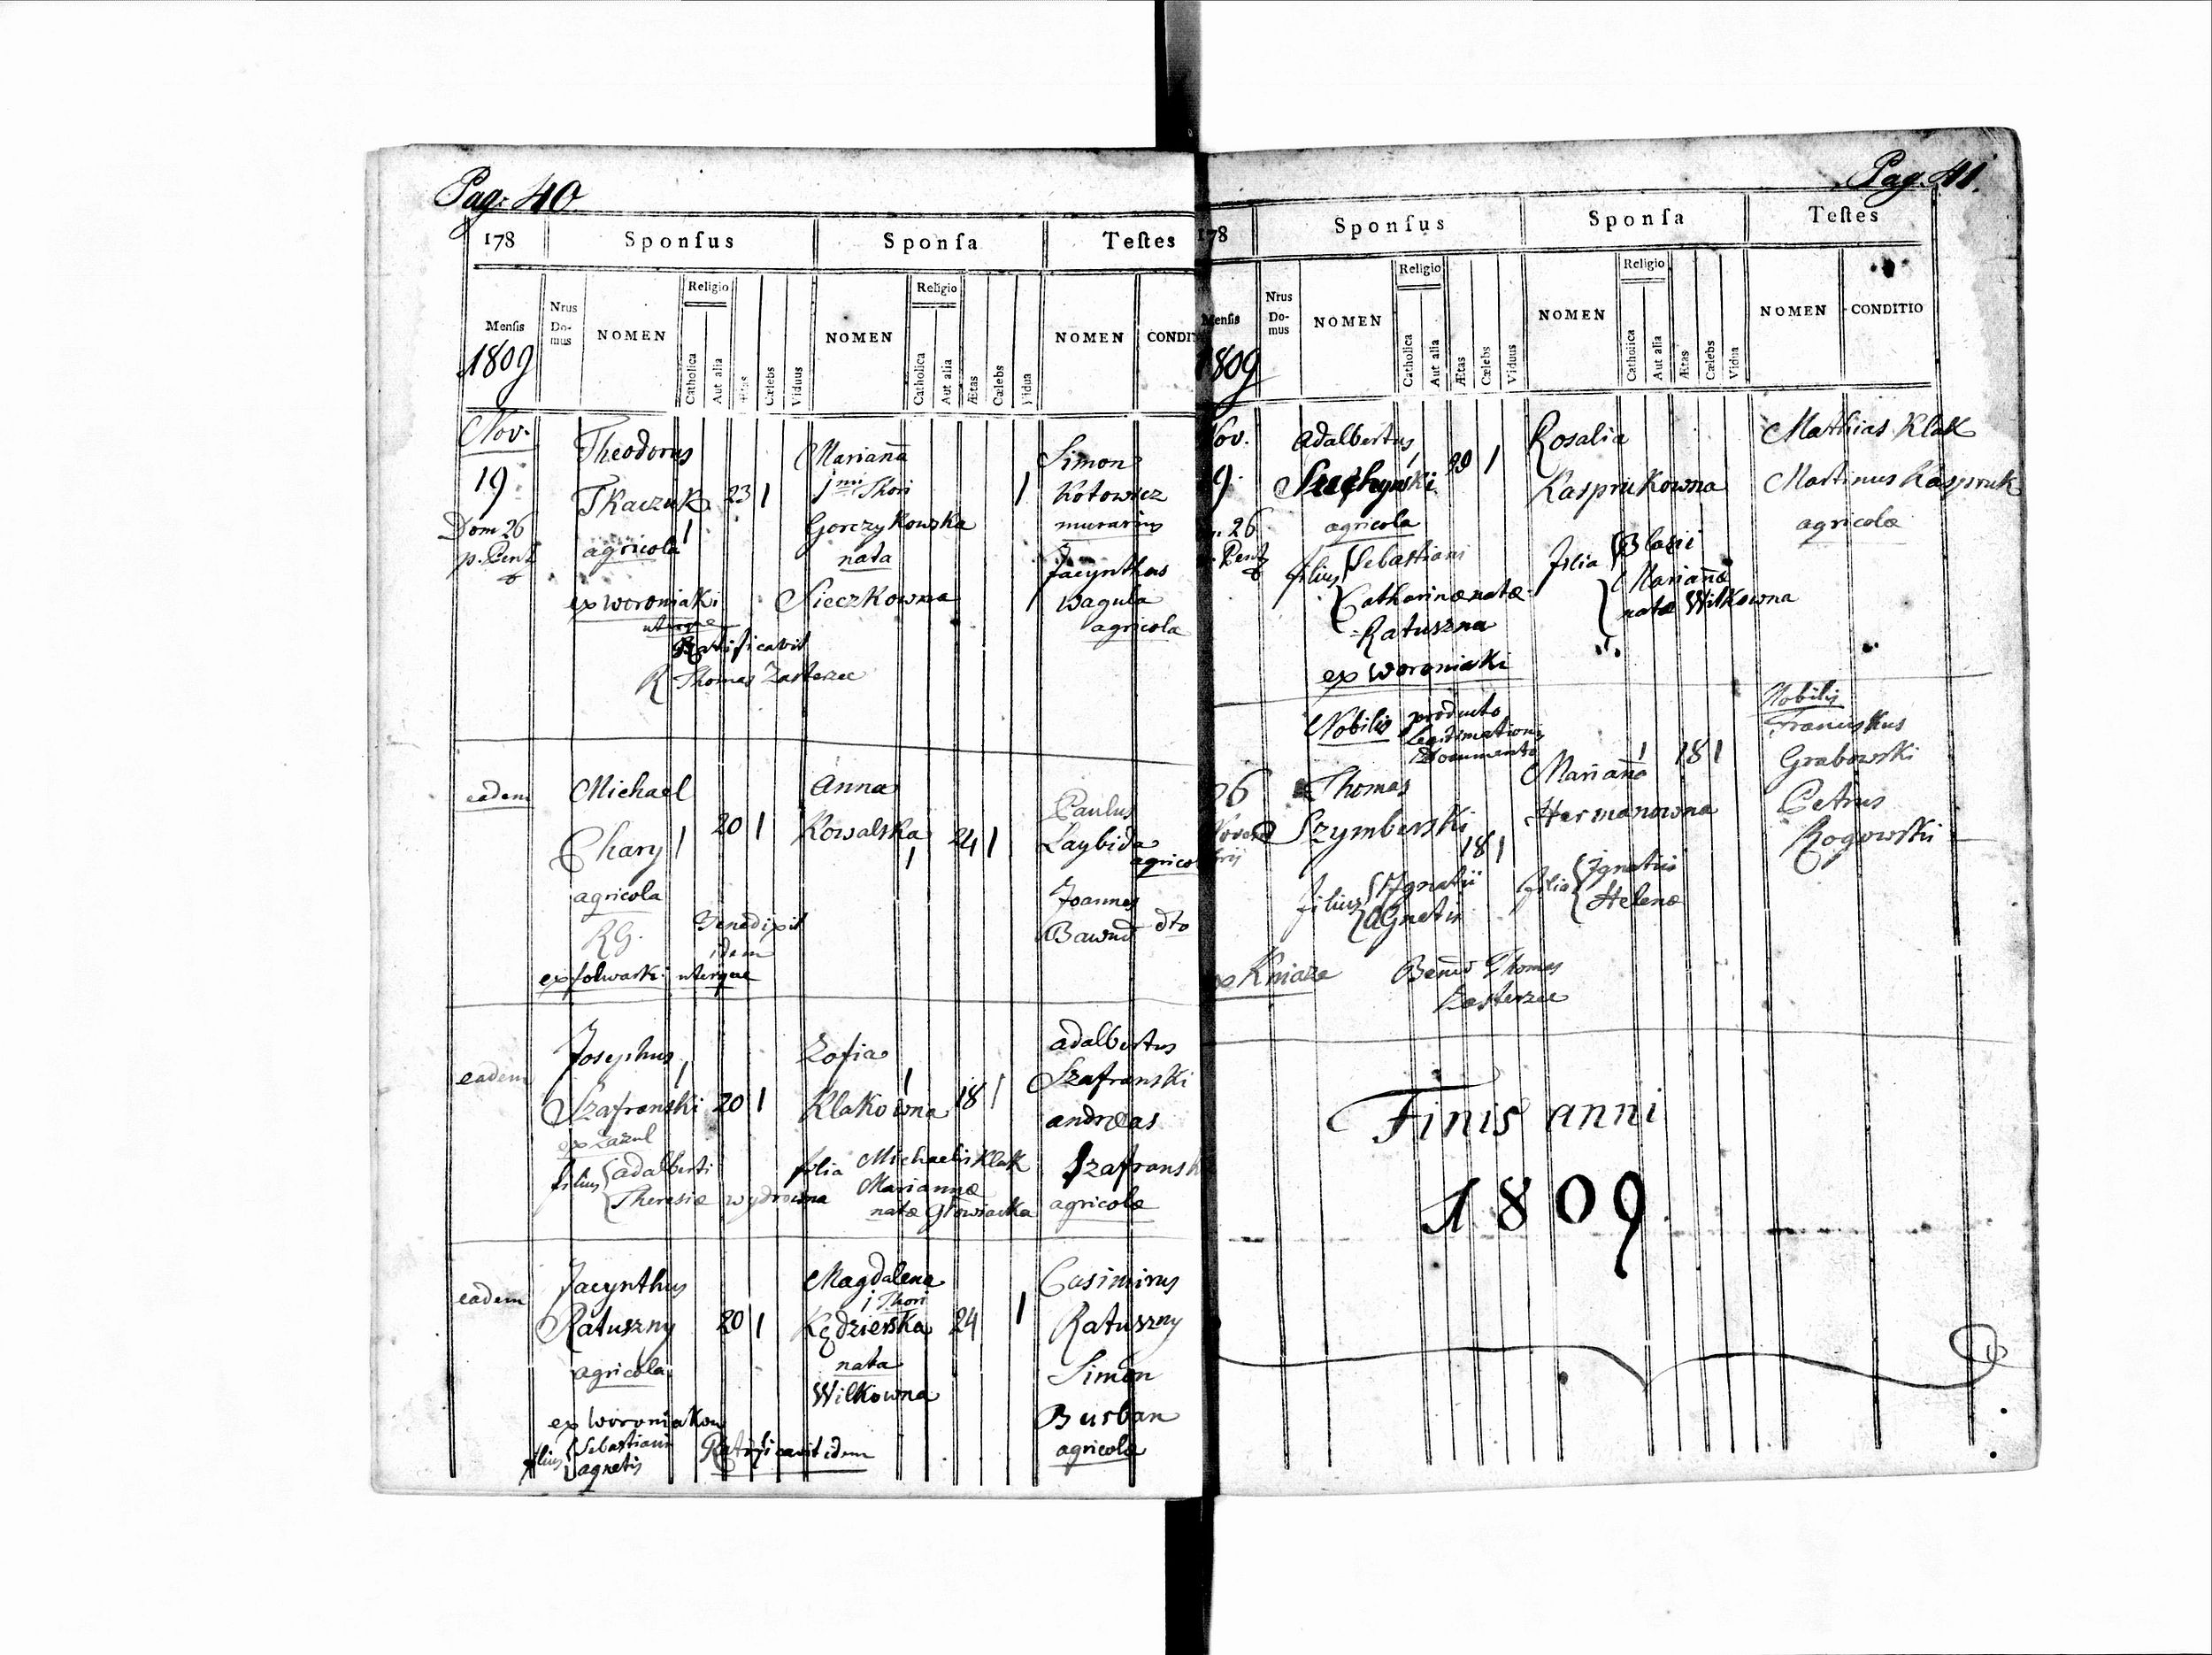 Pag: 40
178 Sponſus Sponſa Teſtes
Menſis Nrus Do- mus NOMEN Religio Catholica Aut alia Ætas Cælebs Viduus NOMEN Religio Catholica Aut alia Ætas Cælebs Vidua NOMEN
1809
Nov.
19
Dom 26
p. Pent
Theodorus
Tkaczuk 23 1
1
agricola
ex woroniaki
uterque
Ratificavit
R Thomas Zasterzec
Marianna
1mi Thori
Gorczykowska
nata
Sieczkowna
1
Simon
Kotowicz
murarius
Jacynthus
Wagula
agricola
eadem
Michael
Chary 1 20 1
agricola
RG.
Benedixit
idem
ex folwarki uterque
Anna
Kowalska 24 1
1
Paulus
Laybida
Joannes
dto
eadem
Josephus 1
Szafranski 20 1
filius adalberti
Theresiæ wydrowna
Zofia
1
Klakowna 18 1
filia Michaelis Klak
Mariannæ
natæ Głowiacka
adalbertus
Szafranski
andreas
agricolæ
eadem
Jacynthus
Ratuszny 20 1
agricola
ex Woroniakow
filius Sebastiani
agnetis
Ratificavit idem
Magdalena
1 Thori
Kędzierska 24 1
nata
Wilkowna
Casimirus
Ratuszny
Simon
Burban
agricolæ
Pag. 41.
178 Sponſus Sponſa Teſtes
Menſis Nrus Do- mus NOMEN Religio Catholica Aut alia Ætas Cælebs Viduus NOMEN Religio Catholica Aut alia Ætas Cælebs Vidua NOMEN CONDITIO
1809
Nov.
26
Pent
Adalbertus
1
agricola
filius Sebastiani
Catharinæ natæ
Ratuszna
ex woroniaki
Rosalia
Kasprukowna
filia Blasii
Mariannæ
natæ Wilkowna
Mathias Klak
Martinus Kaspruk
agricolæ
26
Nobilis producto
Legitimationis
Documento
Thomas
Szymberski
18 1
filius Ignatii
Agnetis
ex Kniaze
Thomas
Zasterzec
1 18 1
Marianna
Hermanowna
filia Ignatii
Helenæ
Nobilis
Franciskus
Grabowski
Petrus
Rogowski
Finis anni
1809